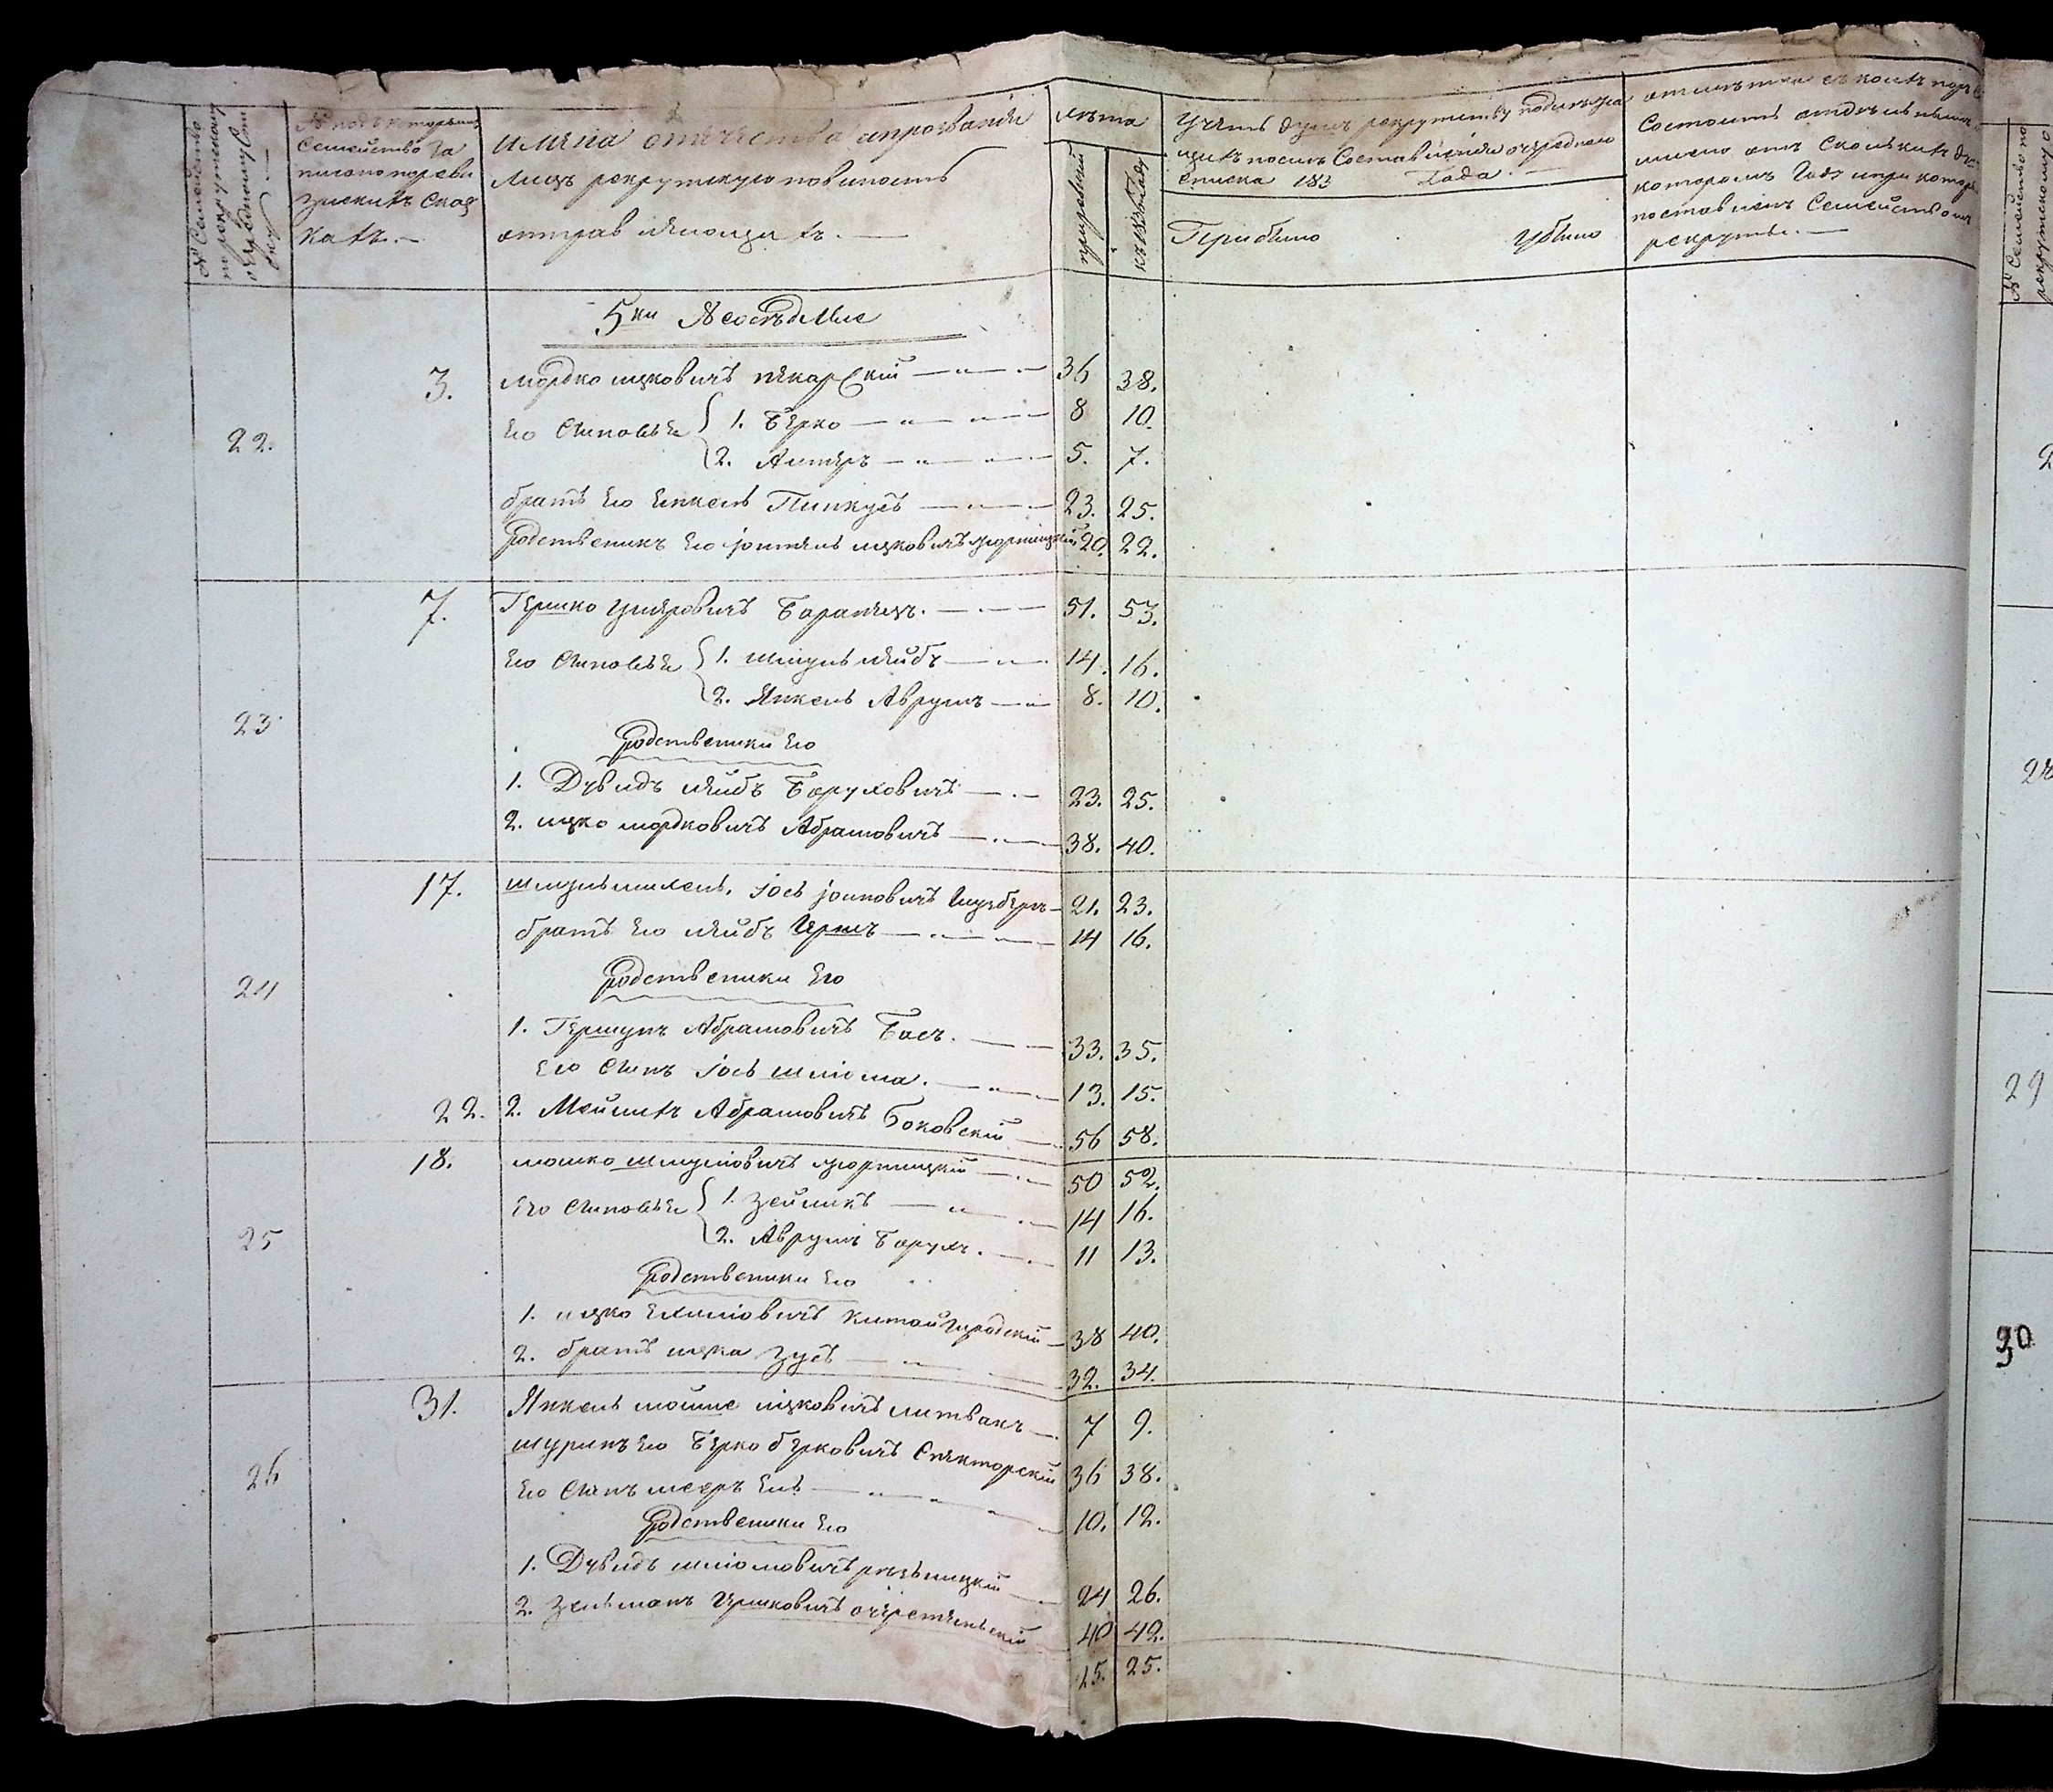 № Семейство по рекрутскому очередному списку
№ подъ которымъ
Семейство За
писано по реви
зискихъ Сказ
кахъ. —
имяна отечества апрозванiи
лицъ рекрутскую повиность
отправляющихъ. —
лѣта
по ревизiи
къ 183 Году
Учетъ душъ рекрутству подлежа
щихъ посли Составленiя очередного
Списка 183 Года
Прибыло
Убыло
отмѣтки съ коихъ
Состоитъ отдельнымъ
число отъ Сколькихъ
которомъ Годѣ ипри
поставленъ Семействомъ
рекрутъ. —
№ Семейство по
рекрутскому о
5ки Лсосѣдкие
22.
3.
мордко ицковичъ пекарСкiй — 36 38.
Его Сыновья { 1. Берко — 8 10.
2. Алтеръ — 5. 7.
братъ Его Енкель Пинкусъ — 23. 25.
родственикъ Его iонтель ицковичъ 20. 22.
23.
7.
Гершко Умеровичъ Баранецъ. — 51. 53.
Его Сыновья { 1. шмуль лейбъ — 14. 16.
2. Янкель Аврумъ — 8. 10.
родственики Его
1. Дувидъ лейбъ Боруховичъ — 23. 25.
2. ицко мордковичъ Абрамовичъ — 38. 40.
24
17.
шмульмихель, iось iоиновичъ — 21. 23.
братъ Его лейбъ Иршъ — 14 16.
родственики Его
1. Гершунъ Абрамовичъ Басъ. — 33. 35.
Его Сынъ iось шлiома. — 13. 15.
22. 2. Мейлихъ Абрамовичъ Боковскiй — 56 58.
25
18.
мошко шмулiовичъ — 50 52.
Его Сыновья { 1. Зейликъ — 14 16.
2. Аврумъ Борухъ. — 11 13.
родственики Его
1. ицко Ехилiовичъ китайгородскiй — 38 40.
2. братъ ицка Зусъ — 32. 34.
26
31.
Янкель мойше iцковичъ литвакъ — 7 9.
шуринъ Его Берко берковичъ Спекторскiй 36 38.
Его Сынъ мееръ Ель — 10. 12.
родственики Его
1. Дувидъ шлiомовичъ резницкiй — 24 26.
2. Зельманъ Иршковичъ очеретянскiй 40 42.
25. 25.
2
28
29
30